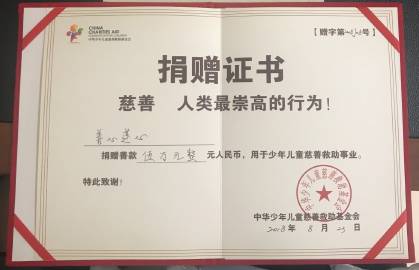 CHINA
CHARITIES AID
中华少年儿童慈善救助基金会
【赠字第 号】
捐赠证书
慈善 人类最崇高的行为!
善心莲心
捐赠善款 伍万元整 元人民币,用于少年儿童慈善救助事业。
特此致谢!
中华少年儿童慈善救助基金会
中华少年儿童慈善救助基金会
2018年 8月 23日